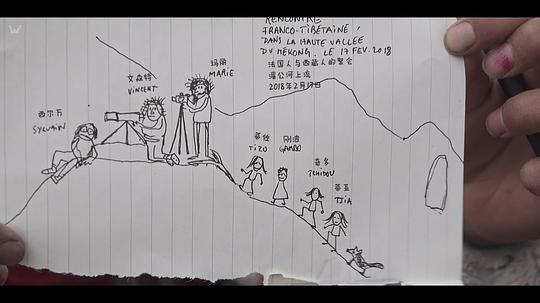 RENCONTRE
FRANCO-TIBÉTAINE,
DANS LA HAUTE VALLÉE
DU MÉKONG. LE 17 FEV. 2018
法国人与西藏人的聚会
湄公河上流
2018年2月17日
玛丽
MARIE
文森特
VINCENT
西尔万
SYLVAIN
TIZO
刚波
GAMBO
奇多
TCHIDOU
蒂亚